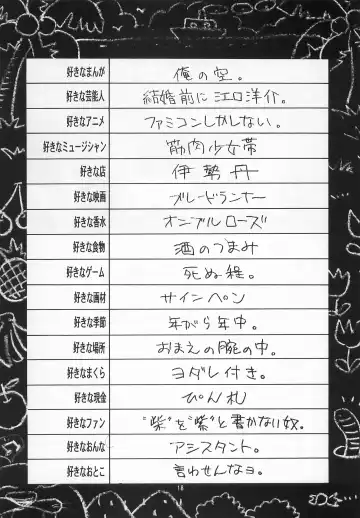 好きなまんが 俺の空。
好きな芸能人 結婚前に江口洋介。
好きなアニメ ファミコンしかしない。
好きなミュージシャン 筋肉少女帯
好きな店 伊勢丹
好きな映画 ブレードランナー
好きな香水 オンブルローズ
好きな食物 酒のつまみ
好きなゲーム 死ぬ程。
好きな画材 サインペン
好きな季節 年がら年中。
好きな場所 おまえの腕の中。
好きなまくら ヨダレ付き。
好きな現金 ぴん札
好きなファン "柴"を"紫"と書かない奴。
好きなおんな アシスタント。
好きなおとこ 言わせんなヨ。
18